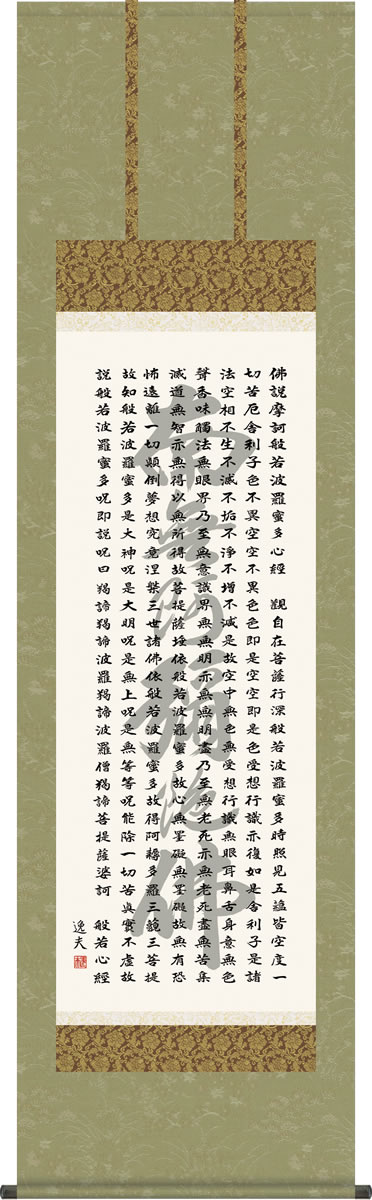 佛説摩訶般若波羅蜜多心經　觀自在菩薩行深般若波羅蜜多時照見五蘊皆空度一
切苦厄舍利子色不異空空不異色色即是空空即是色受想行識亦復如是舍利子是諸
法空相不生不滅不垢不淨不增不減是故空中無色無受想行識無眼耳鼻舌身意無色
聲香味觸法無眼界乃至無意識界無無明亦無無明盡乃至無老死亦無老死盡無苦集
滅道無智亦無得以無所得故菩提薩埵依般若波羅蜜多故心無罣礙無罣礙故無有恐
怖遠離一切顛倒夢想究竟涅槃三世諸佛依般若波羅蜜多故得阿耨多羅三藐三菩提
故知般若波羅蜜多是大神呪是大明呪是無上呪是無等等呪能除一切苦真實不虛故
説般若波羅蜜多呪即説呪曰　羯諦羯諦波羅羯諦波羅僧羯諦菩提薩婆訶　般若心經
逸夫
南無阿彌陀佛